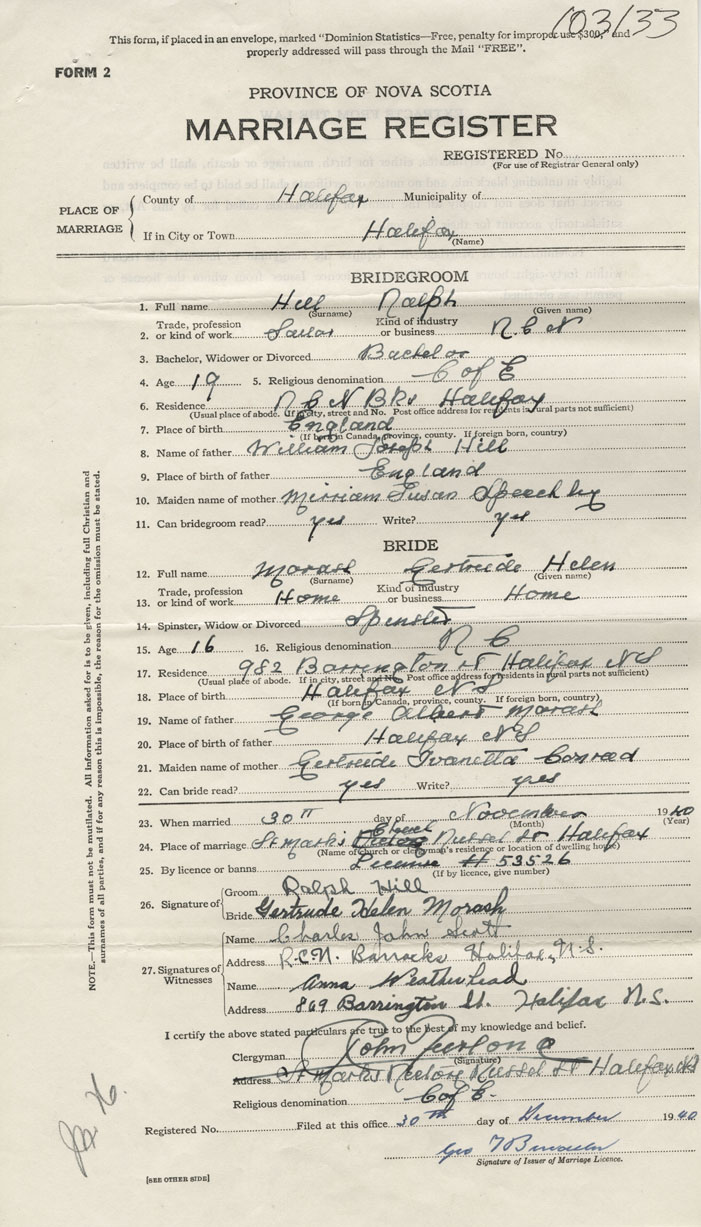 103133
This form, if placed in an envelope, marked "Dominion Statistics—Free, penalty for improper use $300," and
properly addressed will pass through the Mail "FREE".
FORM 2
PROVINCE OF NOVA SCOTIA
MARRIAGE REGISTER
REGISTERED No.
(For use of Registrar General only)
PLACE OF MARRIAGE
County of Halifax Municipality of
If in City or Town Halifax
(Name)
BRIDEGROOM
1. Full name Hill Ralph
(Surname) (Given name)
2. Trade, profession or kind of work Sailor Kind of industry or business R.C.N
3. Bachelor, Widower or Divorced Bachelor
4. Age 19 5. Religious denomination C of E
6. Residence R C N Bks Halifax
(Usual place of abode. If in city, street and No. Post office address for residents in rural parts not sufficient)
7. Place of birth England
(If born in Canada, province, county. If foreign born, country)
8. Name of father William Joseph Hill
9. Place of birth of father England
10. Maiden name of mother Mirriam Susan Speechly
11. Can bridegroom read? yes Write? yes
BRIDE
12. Full name Morash Gertrude Helen
(Surname) (Given name)
13. Trade, profession or kind of work Home Kind of industry or business Home
14. Spinster, Widow or Divorced Spinster
15. Age 16 16. Religious denomination R C
17. Residence 982 Barrington St Halifax NS
(Usual place of abode. If in city, street and No Post office address for residents in rural parts not sufficient)
18. Place of birth Halifax NS
(If born in Canada, province, county. If foreign born, country)
19. Name of father George Albert Morash
20. Place of birth of father Halifax NS
21. Maiden name of mother Gertrude Ivanetta Conrad
22. Can bride read? yes Write? yes
23. When married 30th day of November 1940
(Month) (Year)
24. Place of marriage St Mark's Church Russel St Halifax
(Name of church or clergyman's residence or location of dwelling house)
25. By licence or banns License # 53526
(If by licence, give number)
26. Signature of
Groom Ralph Hill
Bride Gertrude Helen Morash
27. Signatures of Witnesses
Name Charles John Scott
Address R.C.N. Barracks Halifax, N.S.
Name Anna Weatherhead
Address 869 Barrington St. Halifax N.S.
I certify the above stated particulars are true to the best of my knowledge and belief.
Clergyman John
(Signature)
Address St Marks Rectory Russel St Halifax NS
Religious denomination C of E.
Registered No. Filed at this office 30th day of December 1940
Geo
Signature of Issuer of Marriage Licence.
[SEE OTHER SIDE]
NOTE.—This form must not be mutilated. All information asked for is to be given, including full Christian and
surnames of all parties, and if for any reason this is impossible, the reason for the omission must be stated.